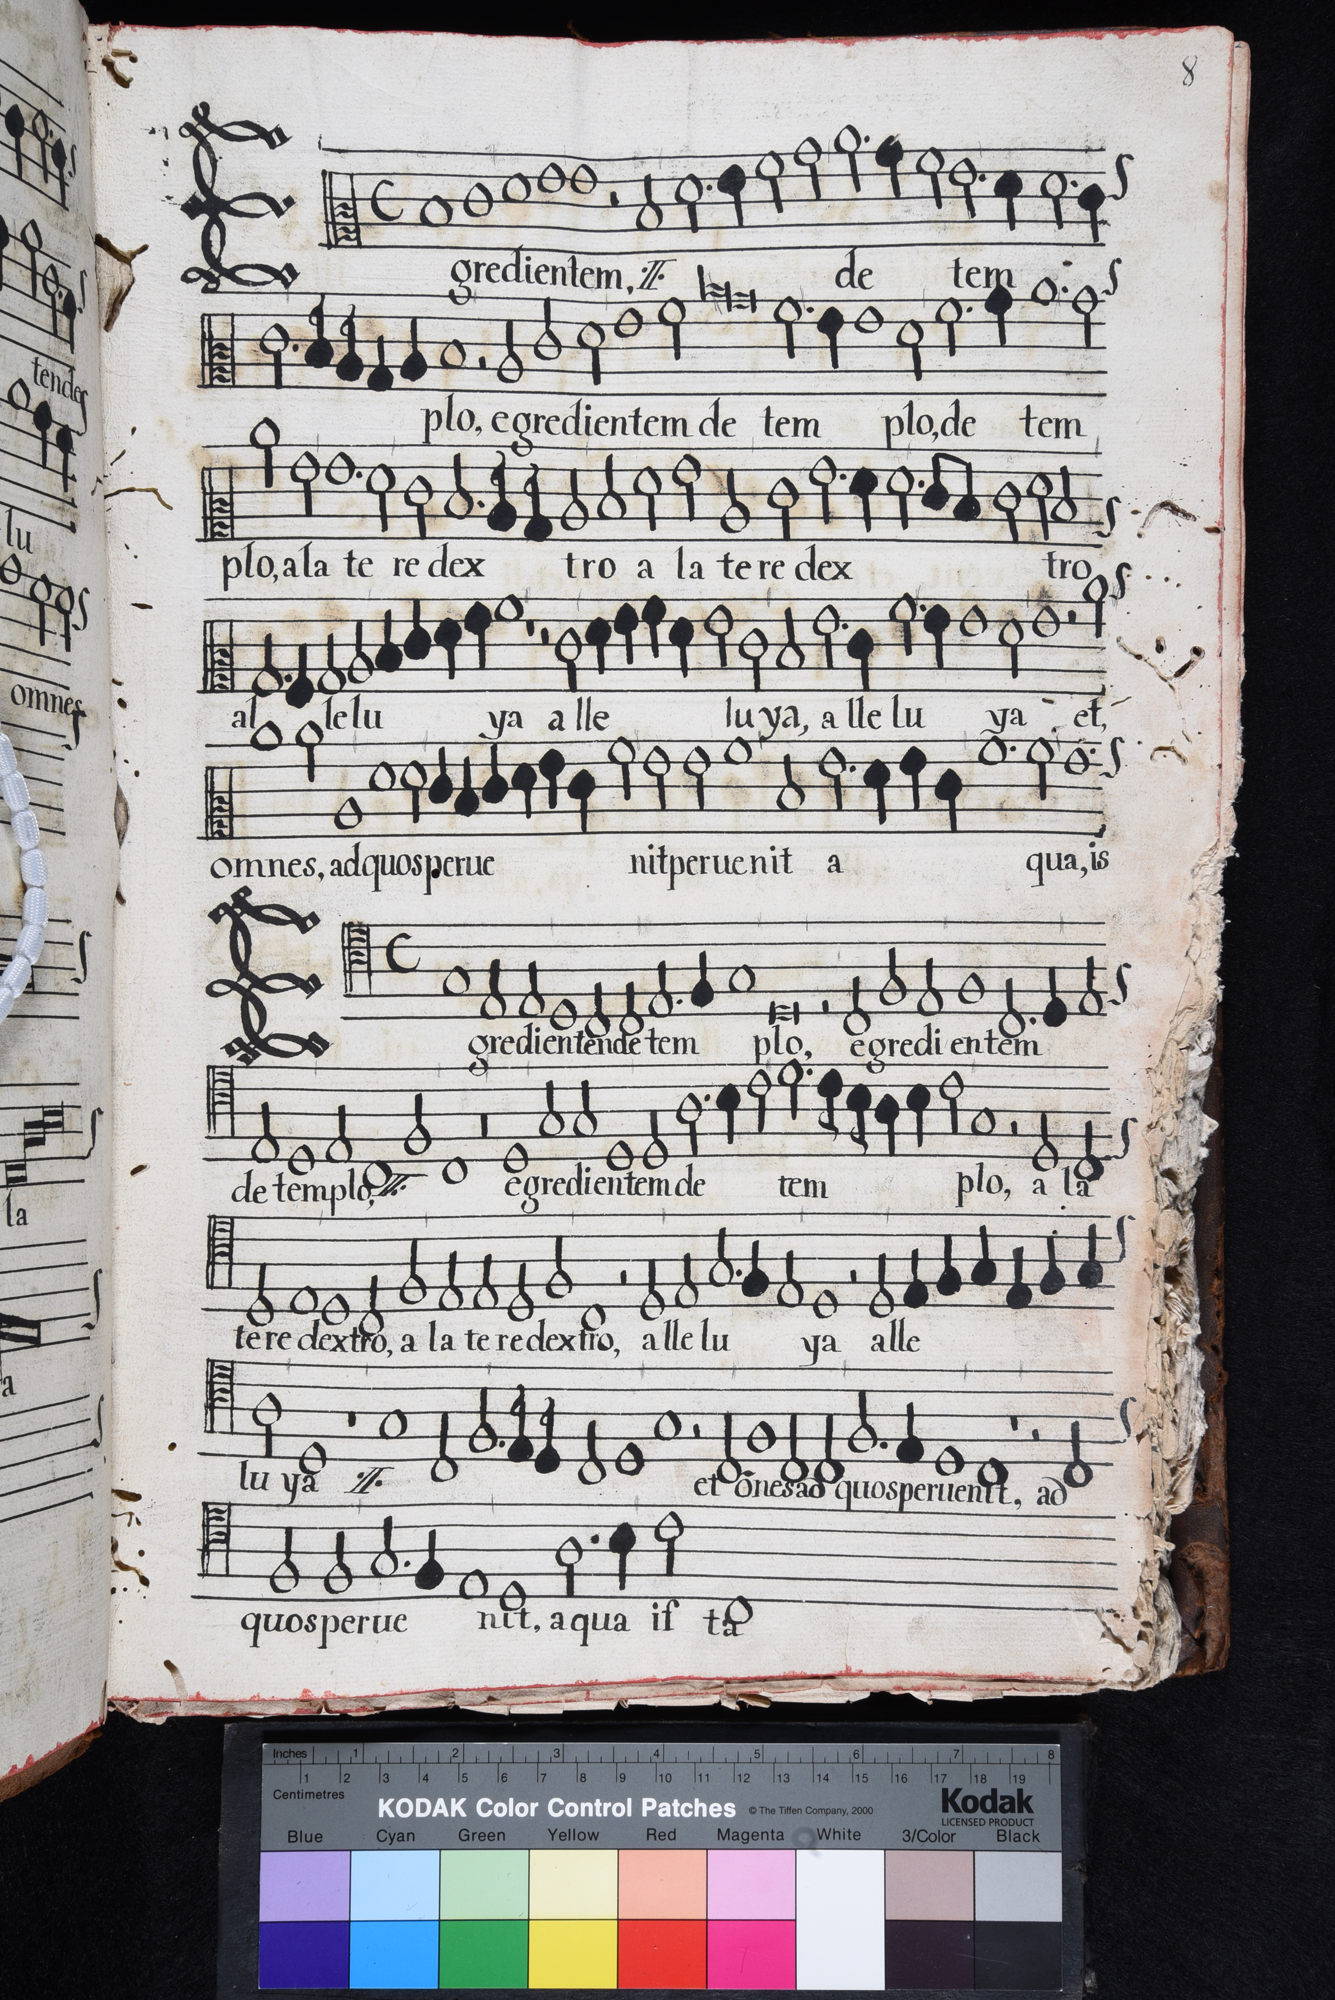 8
E
gredientem, :II: de tem
plo, egredientem de tem plo, de tem
plo, a la te re dex tro a la te re dex tro
al lelu ya alle lu ya, a lle lu ya et,
omnes, adquosperue nitperuenit a qua, is
E
gredientendetem plo, egredi entem
detemplo, :II: egredientemde tem plo, a la
tere dextro, a la te redextro, allelu ya alle
lu ya :II: et õnesad quosperuenit, ad
quosperue nit, aqua if ta
tendes
lu
omnes
la
a
Inches 1 2 3 4 5 6 7 8
Centimetres 1 2 3 4 5 6 7 8 9 10 11 12 13 14 15 16 17 18 19
KODAK Color Control Patches © The Tiffen Company, 2000 Kodak
LICENSED PRODUCT
Blue Cyan Green Yellow Red Magenta White 3/Color Black